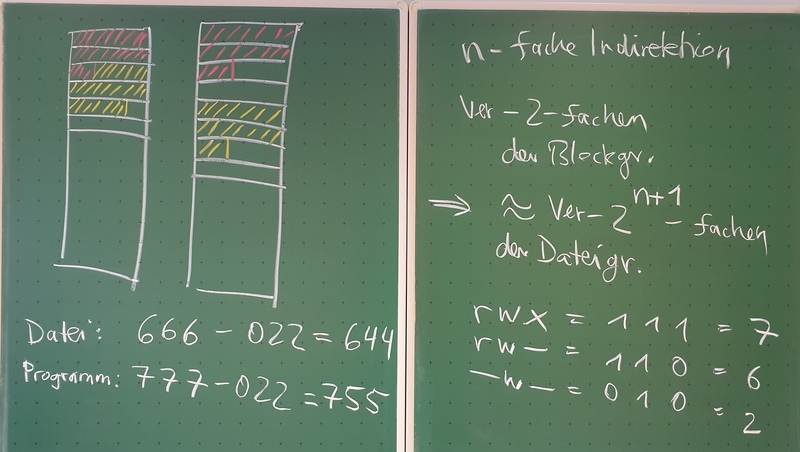 Datei: 666 - 022 = 644
Programm: 777 - 022 = 755
n - fache Indirektion
Ver - 2 - fachen
der Blockgr.
⇒ ≈ Ver - 2^(n+1) - fachen
der Dateigr.
rwx = 111 = 7
rw- = 110 = 6
-w- = 010 = 2